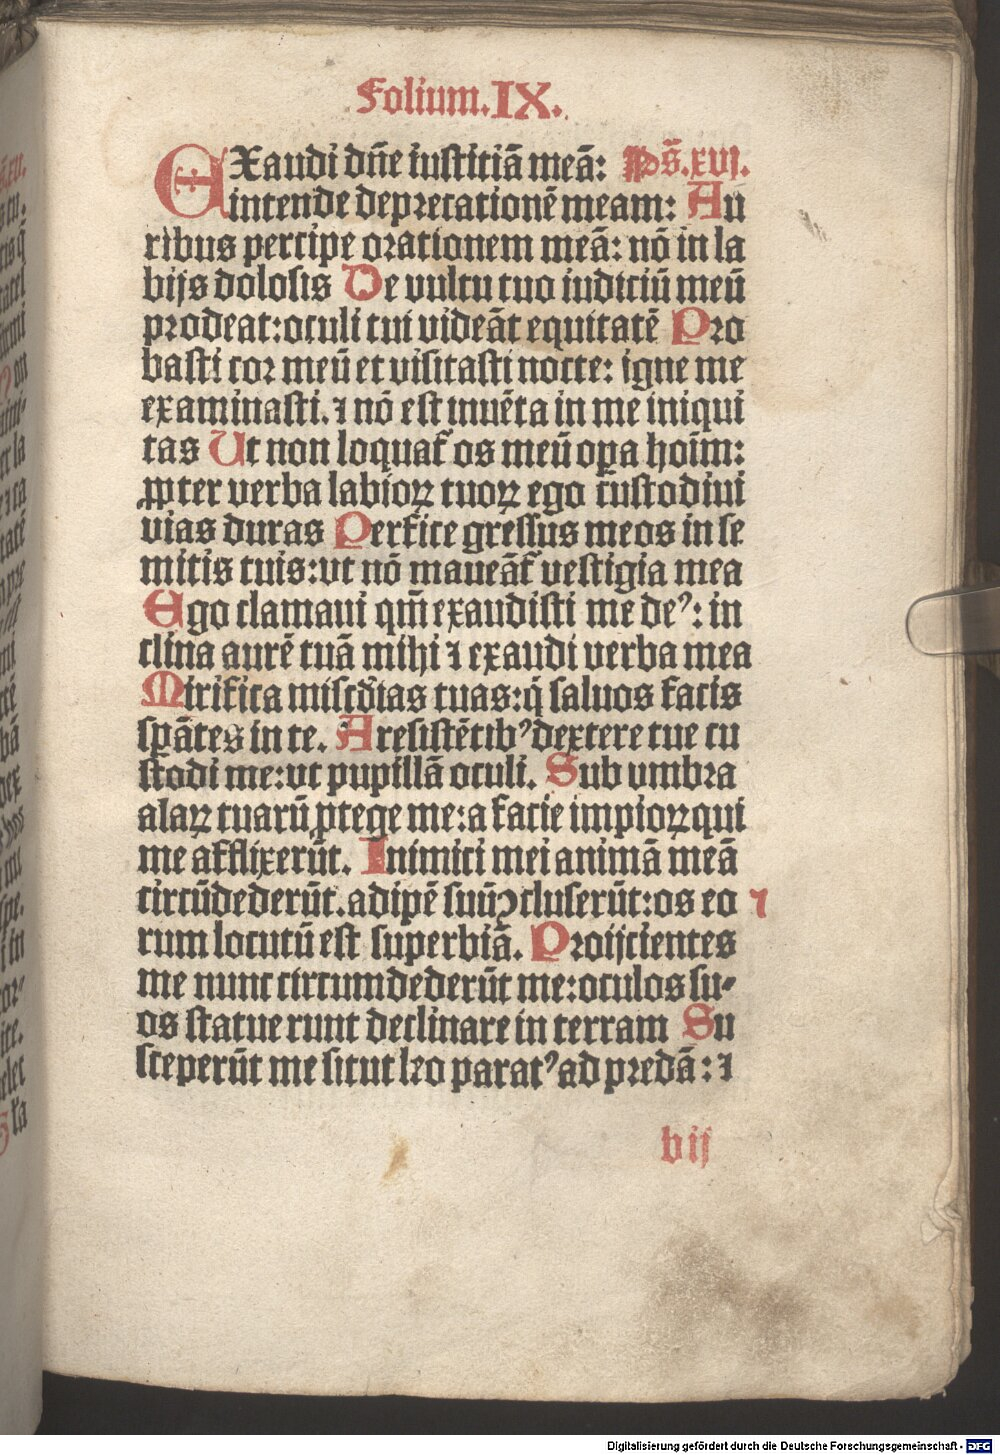 Folium.IX.
EXaudi dn̄e iustitiā meā: Ps̄.xvj.
intende deprecationē meam: Au
ribus percipe orationem meā: nō in la
bijs dolosis De vultu tuo iudiciū meū
prodeat: oculi tui videāt equitatē Pro
basti cor meū et visitasti nocte: igne me
examinasti. ⁊ nō est inuēta in me iniqui
tas Ut non loquat᷑ os meū oꝑa hoīm:
ꝓpter verba labioꝝ tuoꝝ ego custodiui
vias duras Perfice gressus meos in se
mitis tuis: vt nō maueāt᷑ vestigia mea
Ego clamaui qm̄ exaudisti me deꝰ: in
clina aurē tuā mihi ⁊ exaudi verba mea
Mirifica misc̄dias tuas: q̇ saluos facis
sꝑātes in te. A resistētibꝰ dextere tue cu
stodi me: vt pupillā oculi. Sub vmbra
alaꝝ tuarū ꝓtege me: a facie impioꝝ qui
me afflixerūt. Inimici mei animā meā
circūdederūt. adipē suū ꝯcluserūt: os eo ⁊
rum locutū est superbiā. Proijcientes
me nunc circumdederūt me: oculos su⸗
os statuerunt declinare in terram Su
sceperūt me sicut leo paratꝰ ad predā: ⁊
bij
Digitalisierung gefördert durch die Deutsche Forschungsgemeinschaft - DFG